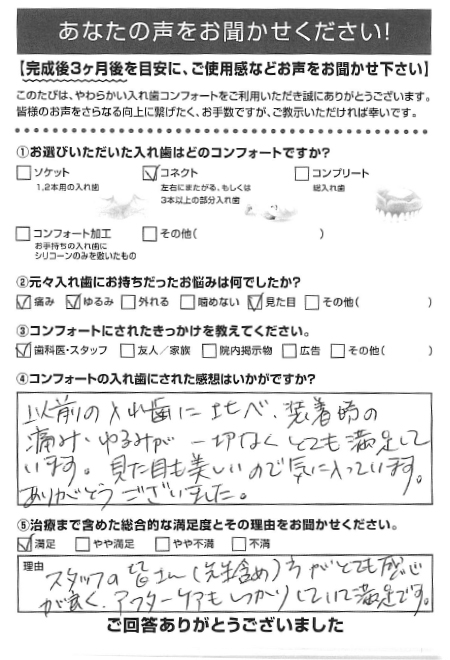 あなたの声をお聞かせください!
【完成後3ヶ月後を目安に、ご使用感などお声をお聞かせ下さい】
このたびは、やわらかい入れ歯コンフォートをご利用いただき誠にありがとうございます。
皆様のお声をさらなる向上に繋げたく、お手数ですが、ご教示いただければ幸いです。
①お選びいただいた入れ歯はどのコンフォートですか?
ソケット
1,2本用の入れ歯
コネクト
左右にまたがる、もしくは
3本以上の部分入れ歯
コンプリート
総入れ歯
コンフォート加工
お手持ちの入れ歯に
シリコーンのみを敷いたもの
その他( )
②元々入れ歯にお持ちだったお悩みは何でしたか?
痛み ゆるみ 外れる 噛めない 見た目 その他( )
③コンフォートにされたきっかけを教えてください。
歯科医・スタッフ 友人/家族 院内掲示物 広告 その他( )
④コンフォートの入れ歯にされた感想はいかがですか?
以前の入れ歯に比べ、装着時の
痛み、ゆるみが一切なくとても満足して
います。見た目も美しいので気に入っています。
ありがとうございました。
⑤治療まで含めた総合的な満足度とその理由をお聞かせください。
満足 やや満足 やや不満 不満
理由
スタッフの皆さん(先生含め)方がとても感じ
が良く、アフターケアもしっかりしていて満足です。
ご回答ありがとうございました